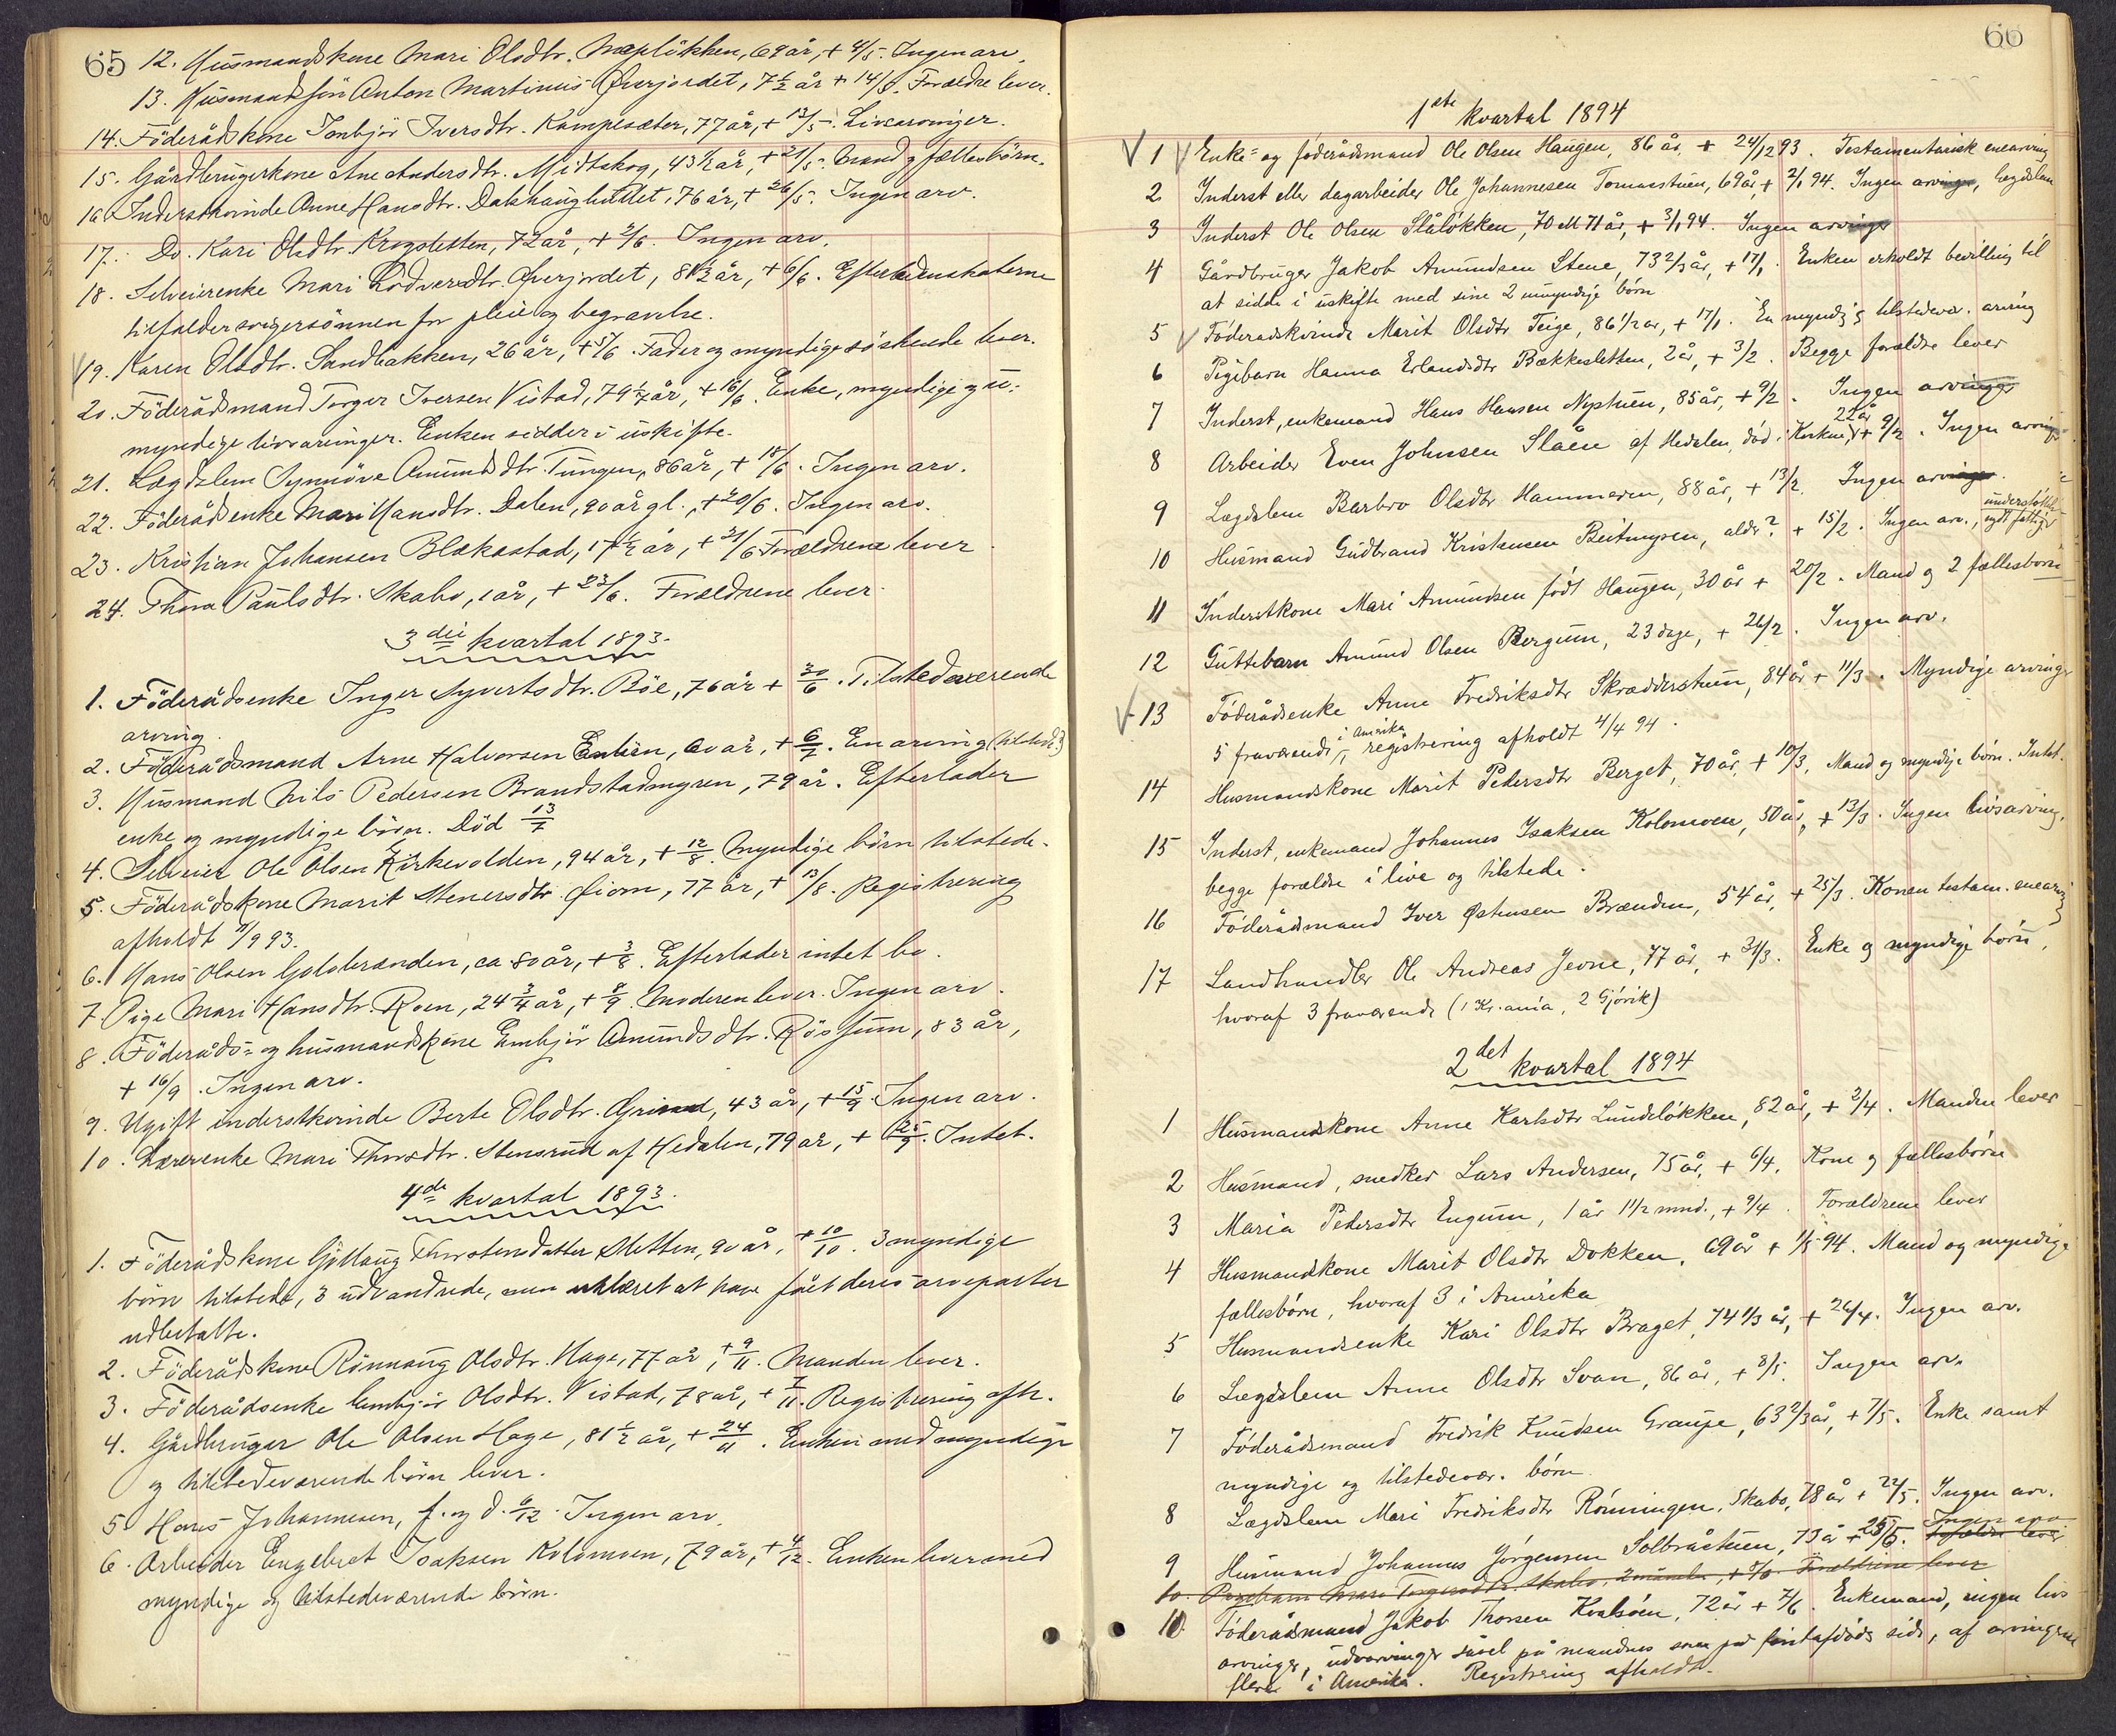 65
12. Husmandskone Mari Olsdtr. Næpløkken, 69 år, + 4/5. Ingen arv.
13. Husmandsøn Anton Martinius Øverjordet, 7 1/2 år + 14/5. Forældre lever.
14. Föderådskone Jonbjör Iversdtr. Kampesæter, 77 år, + 12/5. Livsarvinger.
15. Gårdbrugerkone Ane Andersdtr. Midtskog, 43 1/2 år, + 21/5. Mand og fællesbörn.
16. Inderstkvinde Anne Hansdtr. Dalshaugbuttet, 76 år, + 26/5. Ingen arv.
17. Do. Kari Olsdtr. Krogsletten, 72 år, + 2/6. Ingen arv.
18. Selveierenke Mari Lodversdtr. Øverjordet, 81 1/2 år, + 6/6. Efterladenskaterne
tilfalder svigersönnen for pleie og begravelse.
19. Karen Olsdtr. Sandbakken, 26 år, + 5/6. Fader og myndige söskende lever.
20. Föderådsmand Torger Iversen Vistad, 79 1/2 år, + 16/6. Enke, myndige og u-
myndige livsarvinger. Enken sidder i uskifte.
21. Lægdslem Synnöve Amundsdtr. Tungen, 86 år, + 18/6. Ingen arv.
22. Föderådsenke Mari Hansdtr. Dalen, 90 år gl., + 20/6. Ingen arv.
23. Kristian Johansen Blækastad, 17 1/2 år, + 21/6 Forældrene lever
24. Thora Paulsdtr. Skabo, 1 år, + 23/6. Forældrene lever.
3die kvartal 1893.
1. Föderådsenke Inger Syvertsdtr. Böe, 76 år + 30/6. Tilstedeværende
arving.
2. Föderådsmand Arne Halvorsen Enlien, 60 år, + 6/7. En arving (tilstede?)
3. Husmand Nils Pedersen Brandstadmyren, 79 år. Efterlader
enke og myndige börn. Död 13/7
4. Selveier Ole Olsen Kirkevolden, 94 år, + 12/8. Myndige börn tilstede.
5. Föderådskone Marit Stenersdtr. Öiom, 77 år, + 13/8. Registrering
afholdt 11/9 93.
6. Hans Olsen Golobranden, ca 80 år, + 3/8. Efterlader intet bo.
7. Pige Mari Hansdtr. Roen, 24 3/4 år, + 8/9. Moderen lever. Ingen arv.
8. Föderåds- og husmandskone Embjör Amundsdtr. Rössum, 83 år,
+ 16/9. Ingen arv.
9. Ugift inderstkvinde Berte Olsdtr. Grined, 43 år, + 15/9. Ingen arv.
10. Lærerenke Mari Thorsdtr. Stensrud af Hedalen, 79 år, + 25/9. Intet.
4de kvartal 1893.
1. Föderådskone Gjöllaug Thorstensdatter Sletten, 90 år, + 10/10. 3 myndige
börn tilstede, 3 udvandrede, men erklæret at have fået deres arveparter
udbetalte.
2. Föderådskone Rönnaug Olsdtr. Hage, 77 år, + 9/11. Manden lever.
3. Föderådsenke Embjör Olsdtr. Vistad, 78 år, + 7/11. Registrering afh.
4. Gårdbruger Ole Olsen Hage, 81 1/2 år, + 24/11. Enken med myndige
og tilstedeværende börn lever.
5. Hans Johannesen, f. og d. 6/12. Ingen arv.
6. Arbeider Engebret Isaksen Kolomoen, 79 år, + 4/12. Enken lever med
myndige og tilstedeværende börn.
66
1ste kvartal 1894
1 Enke- og føderådsmand Ole Olsen Haugen, 86 år, + 24/12 93. Testamentarisk enearving
2 Inderst eller dagarbeider Ole Johannesen Tomasstuen, 69 år, + 2/1 94. Ingen arvinger, lægdslem
3 Inderst Ole Olsen Slåløkken, 70 til 71 år, + 3/1 94. Ingen arvinger
4 Gårdbruger Jakob Amundsen Stene, 73 2/3 år, + 17/1. Enken erholdt bevilling til
at sidde i uskifte med sine 2 umyndige børn
5 Føderadskvinde Marit Olsdtr Teige, 86 1/2 år, + 17/1. En myndig og tilstedevær. arving
6 Pigebarn Hanna Erlandsdtr Bækkesletten, 2 år, + 3/2. Begge forældre lever
7 Inderst, enkemand Hans Hansen Nystuen, 85 år, + 9/2. Ingen arvinger
8 Arbeider Even Johnsen Slåen af Hedalen, død i Korkne, 22 år + 9/2. Ingen arvinger
9 Lægdslem Barbro Olsdtr Hammeren, 88 år, + 13/2. Ingen arvinger.
10 Husmand Gudbrand Kristensen Beitmyren, aldr? + 15/2. Ingen arv., understøttelse nydt fattigv
11 Inderstkone Mari Amundsen født Haugen, 30 år + 20/2. Mand og 2 fællesbørn
12 Guttebarn Amund Olsen Bergum, 23 dage, + 26/2. Ingen arv.
13 Føderådsenke Anne Fredriksdtr Skrædderstuen, 84 år + 11/3. Myndige arvinger
5 fraværende i Amerika, registrering afholdt 4/4 94.
14 Husmandskone Marit Pedersdtr Berget, 70 år, + 10/3, Mand og myndige børn. Intet.
15 Inderst, enkemand Johannes Isaksen Kolomoen, 50 år, + 13/3. Ingen livsarving,
begge forældre i live og tilstede.
16 Føderådsmand Iver Østensen Brænden, 54 år, + 25/3. Konen testam. enearving
17 Landhandler Ole Andreas Jevne, 77 år, + 31/3. Enke og myndige børn,
hvoraf 3 fraværende (1 Kr.ania, 2 Gjørik)
2det kvartal 1894
1 Husmandskone Anne Karlsdtr Lundeløkken, 82 år, + 2/4. Manden lever
2 Husmand, snedker Lars Andersen, 75 år, + 6/4. Kone og fællesbørn
3 Maria Pedersdtr Engum, 1 år 1 1/2 mnd., + 9/4. Forældrene lever
4 Husmandskone Marit Olsdtr Dokken, 69 år + 1/5 94. Mand og myndige
fællesbørn, hvoraf 3 i Amerika
5 Husmandsenke Kari Olsdtr Braget, 74 1/3 år, + 26/4. Ingen arv.
6 Lægdslem Anne Olsdtr Svan, 86 år, + 8/5. Ingen arv.
7 Føderådsmand Fredrik Knudsen Graupe, 63 2/3 år, + 7/5. Enke samt
myndige og tilstedevær. børn.
8 Lægdslem Mari Fredriksdtr Rønningen, Skabo, 78 år + 22/5. Ingen arv.
9 Husmand Johannes Jørgensen Solbråstuen, 73 år + 25/5. Ingen arv
10. Pigebarn Mari Torgersdtr. Skabo, 2 måneder, + 5/6. Forældrene lever
10 Føderådsmand Jakob Thoresen Kvalsøen, 72 år + 7/6. Enkemand, ingen livs
arvinger, udarvinger såvel på mandens som på førstafdødes side, af arvingerne
flere i Amerika. Registrering afholdt.